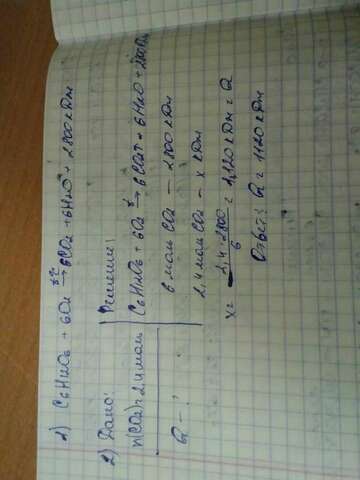 1) C6H12O6 + 6O2 t°→ 6CO2 + 6H2O + 2800 кДж
2) Дано:
n(CO2) = 2,4 моль
Q - ?
Решение:
C6H12O6 + 6O2 t→ 6CO2↑ + 6H2O + 2800 кДж
6 моль CO2 - 2800 кДж
2,4 моль CO2 - x кДж
x = 2,4 · 2800 / 6 = 1,120 кДж = Q
Ответ: Q = 1120 кДж